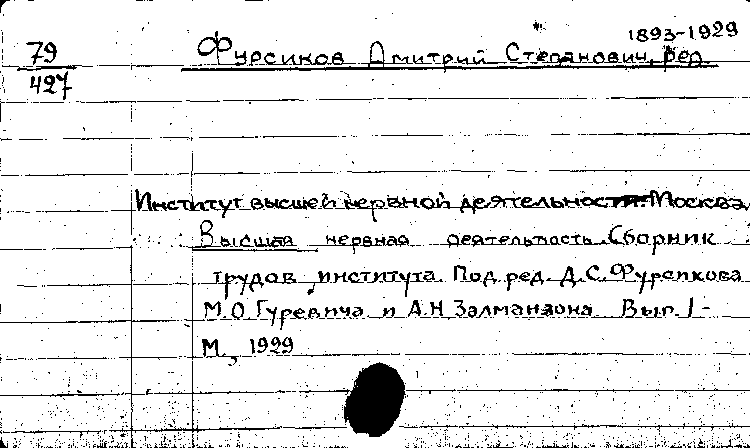 1893-1929
79
427
Фурсиков Дмитрий Степанович, ред.
Институт высшей нервной деятельности. Москва
Высшая нервная деятельность. Сборник
трудов института. Под ред. Д.С. Фурсикова
М.О. Гуревича и А.Н. Залманзона. Вып. 1-
М., 1929